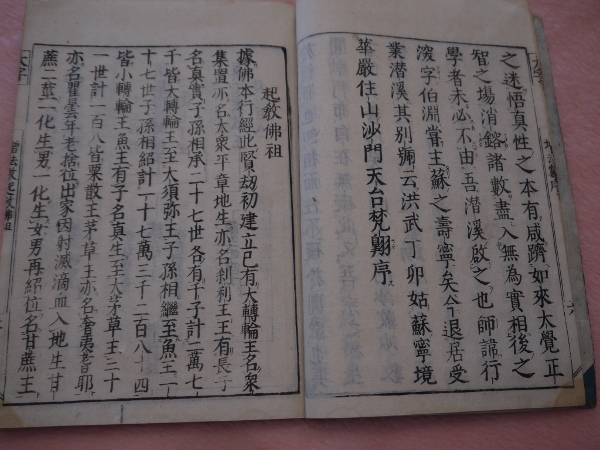 之迷悟真性之本有咸躋如來大覺正
智之場消鎔諸數盡入無為實相後之
學者未必不由吾潜溪啟之也師諱行
深字伯淵嘗主蘇之壽寧矣今退居受
業潜溪其別號云洪武丁卯姑蘇寧境
華嚴住山沙門天台梵翺序
起教佛祖
據佛本行經此賢劫初建立已有大轉輪王名衆
集置亦名大衆平章地生亦名刹利王王有長子
名真實子孫相承二十七世各有千子計二萬七
千皆大轉輪王至大須弥王子孫相繼至魚王二
十七世子孫相紹計一十七萬三千二百八十四
皆小轉輪王魚王有子名真生至大茅草王三十
一世計一百八皆粟散王茅草王亦名瞿夷耆耶
亦名瞿曇年老捨位出家因射滅滴血入地生甘
蔗二莖一化生男一化生女男再紹位名甘蔗王